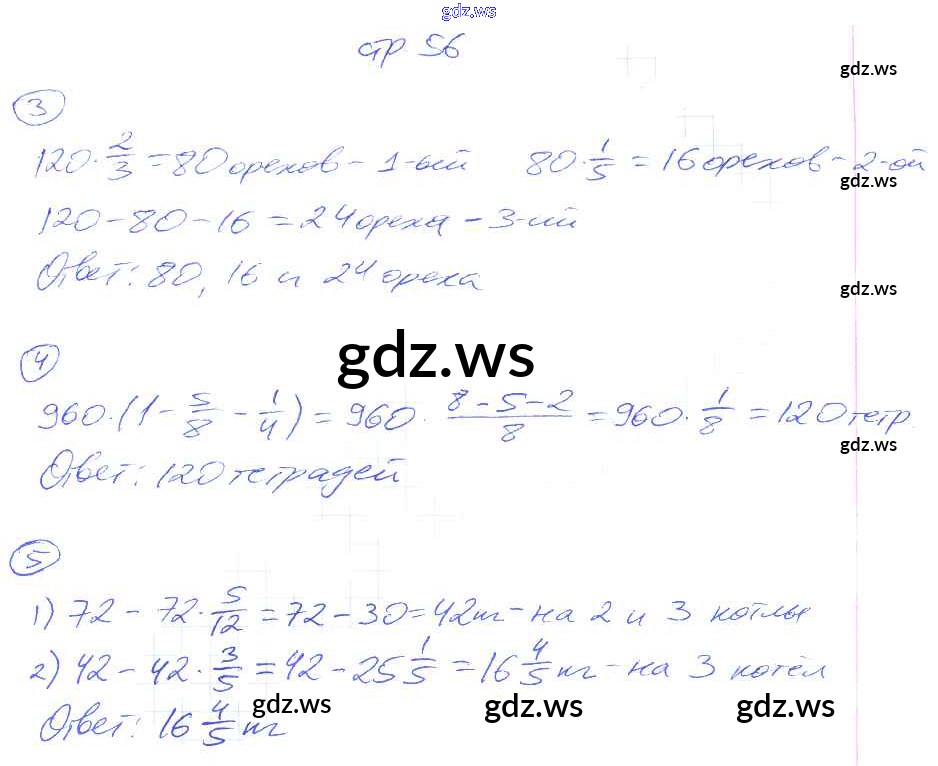 gdz.ws
стр. 56
gdz.ws
3
120 · 2/3 = 80 орехов - 1-ый 80 · 1/5 = 16 орехов - 2-ой
gdz.ws
120 - 80 - 16 = 24 ореха - 3-ий
Ответ: 80, 16 и 24 ореха
gdz.ws
gdz.ws
4
960 · (1 - 5/8 - 1/4) = 960 · (8 - 5 - 2)/8 = 960 · 1/8 = 120 тетр.
gdz.ws
Ответ: 120 тетрадей
5
1) 72 - 72 · 5/12 = 72 - 30 = 42 т - на 2 и 3 котлы
2) 42 - 42 · 3/5 = 42 - 25 1/5 = 16 4/5 т - на 3 котёл
gdz.ws gdz.ws gdz.ws
Ответ: 16 4/5 т